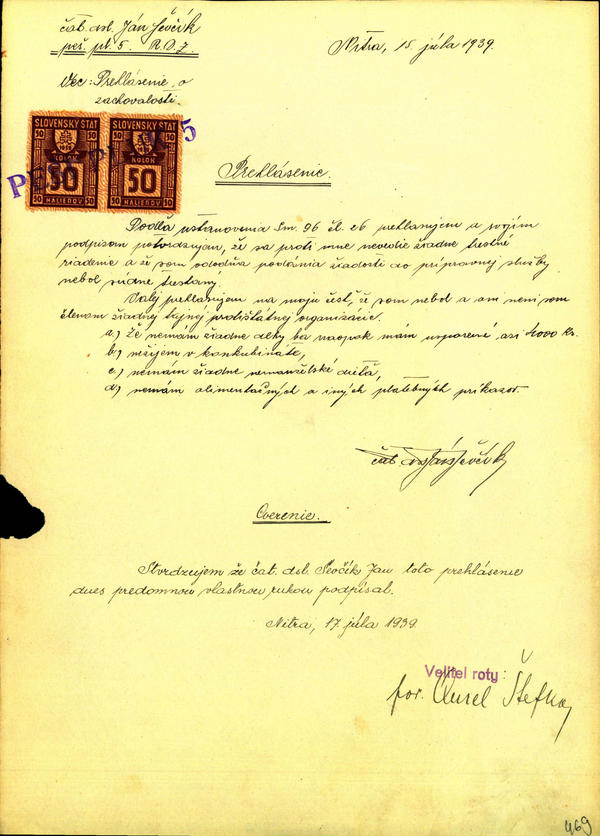 čat. dsl. Ján Ševčík
peš. pl. 5. R.O.7.
Nitra, 15. júla 1939.
Vec: Prehlásenie o
zachovalosti.
SLOVENSKÝ ŠTÁT SLOVENSKÝ ŠTÁT
50 50 50 50
1939 1939
KOLOK KOLOK
50 50
HALIEROV HALIEROV
Prehlásenie.
Podľa ustanovenia Sm. 96 čl. 26 prehlasujem a svojím
podpisom potvrdzujem, že sa proti mne nevedie žiadne trestné
riadenie a že som odo dňa podánia žiadosti do prípravnej služby
nebol súdne trestaný.
Ďalej prehlasujem na moju česť, že som nebol a ani neni som
členom žiadnej tajnej protištátnej organizácie.
a.) Že nemám žiadne dlhy ba naopak mám usporené asi 4000 Ks.
b.) nežijem v konkubináte,
c.) nemám žiadne nemanželské dieťa,
d.) nemám alimentačných a iných platebných príkazov.
čat. dsl. Ján Ševčík
Overenie.
Stvrdzujem že čat. dsl. Ševčík Jan toto prehlásenie
dnes predomnou vlastnou rukou podpísal.
Nitra, 17. júla 1939.
Veliteľ roty:
por. Aurel Štefko
469